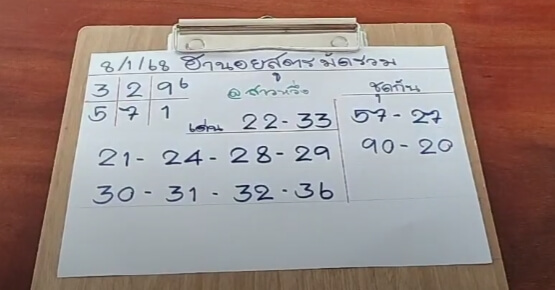 8/1/68 ฮานอยสูตรมัดรวม
3 2 9 6
5 7 1
@สาวหวึ่ง
ชุดกัน
เด่น 22-33
57-27
90-20
21-24-28-29
30-31-32-36